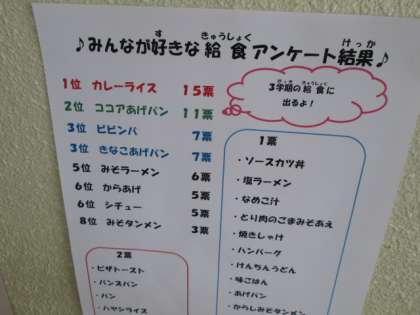 ♪みんなが好きな給食アンケート結果♪
1位 カレーライス 15票
2位 ココアあげパン 11票
3位 ビビンバ 7票
3位 きなこあげパン 7票
5位 みそラーメン 6票
6位 からあげ 5票
6位 シチュー 5票
8位 みそタンメン 3票
3学期の給食に
出るよ!
2票
・ピザトースト
・パンスパン
・パン
・ハヤシライス
1票
・ソースカツ丼
・塩ラーメン
・なめこ汁
・とり肉のごまみそあえ
・焼きしゃけ
・ハンバーグ
・けんちんうどん
・味ごはん
・あげパン
・からしみそタンメン